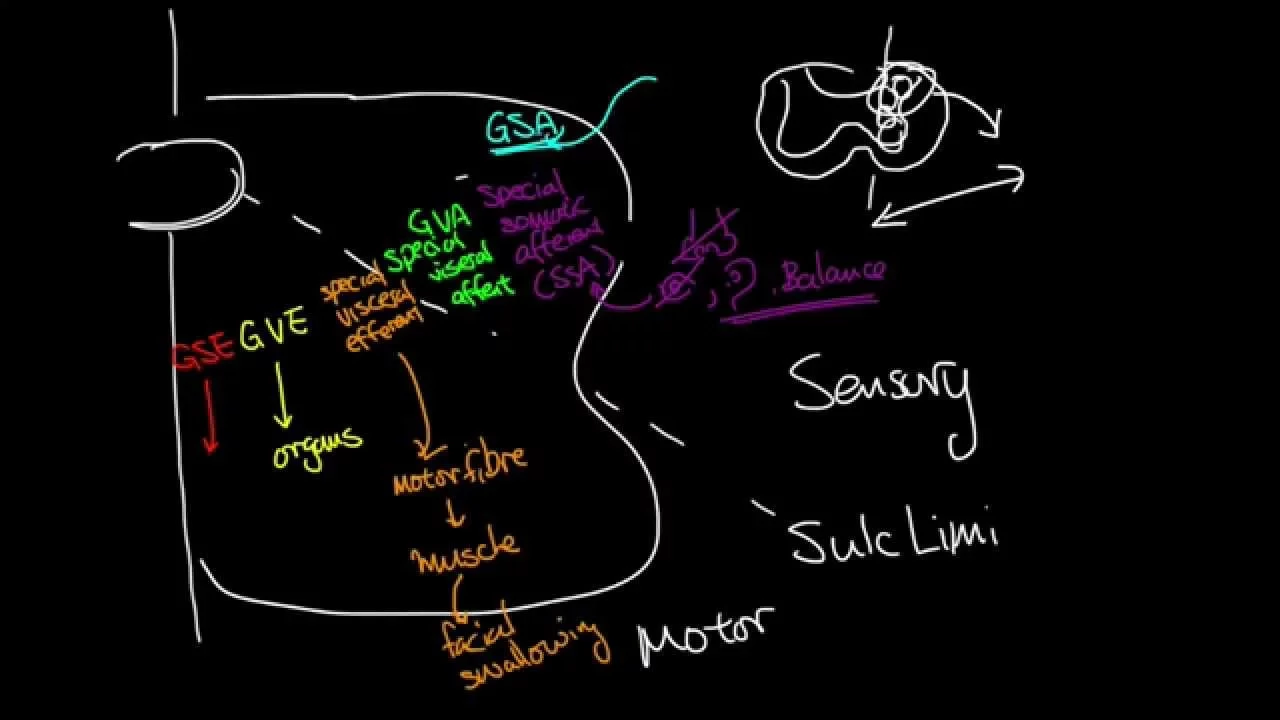 GSA
special
somatic
afferent
(SSA)
GVA
special
viseral
affert
special
visceral
efferent
GSE
GVE
organs
motor fibre
muscle
facial
swallowing
Balance
Sensory
Sulc Limi
Motor